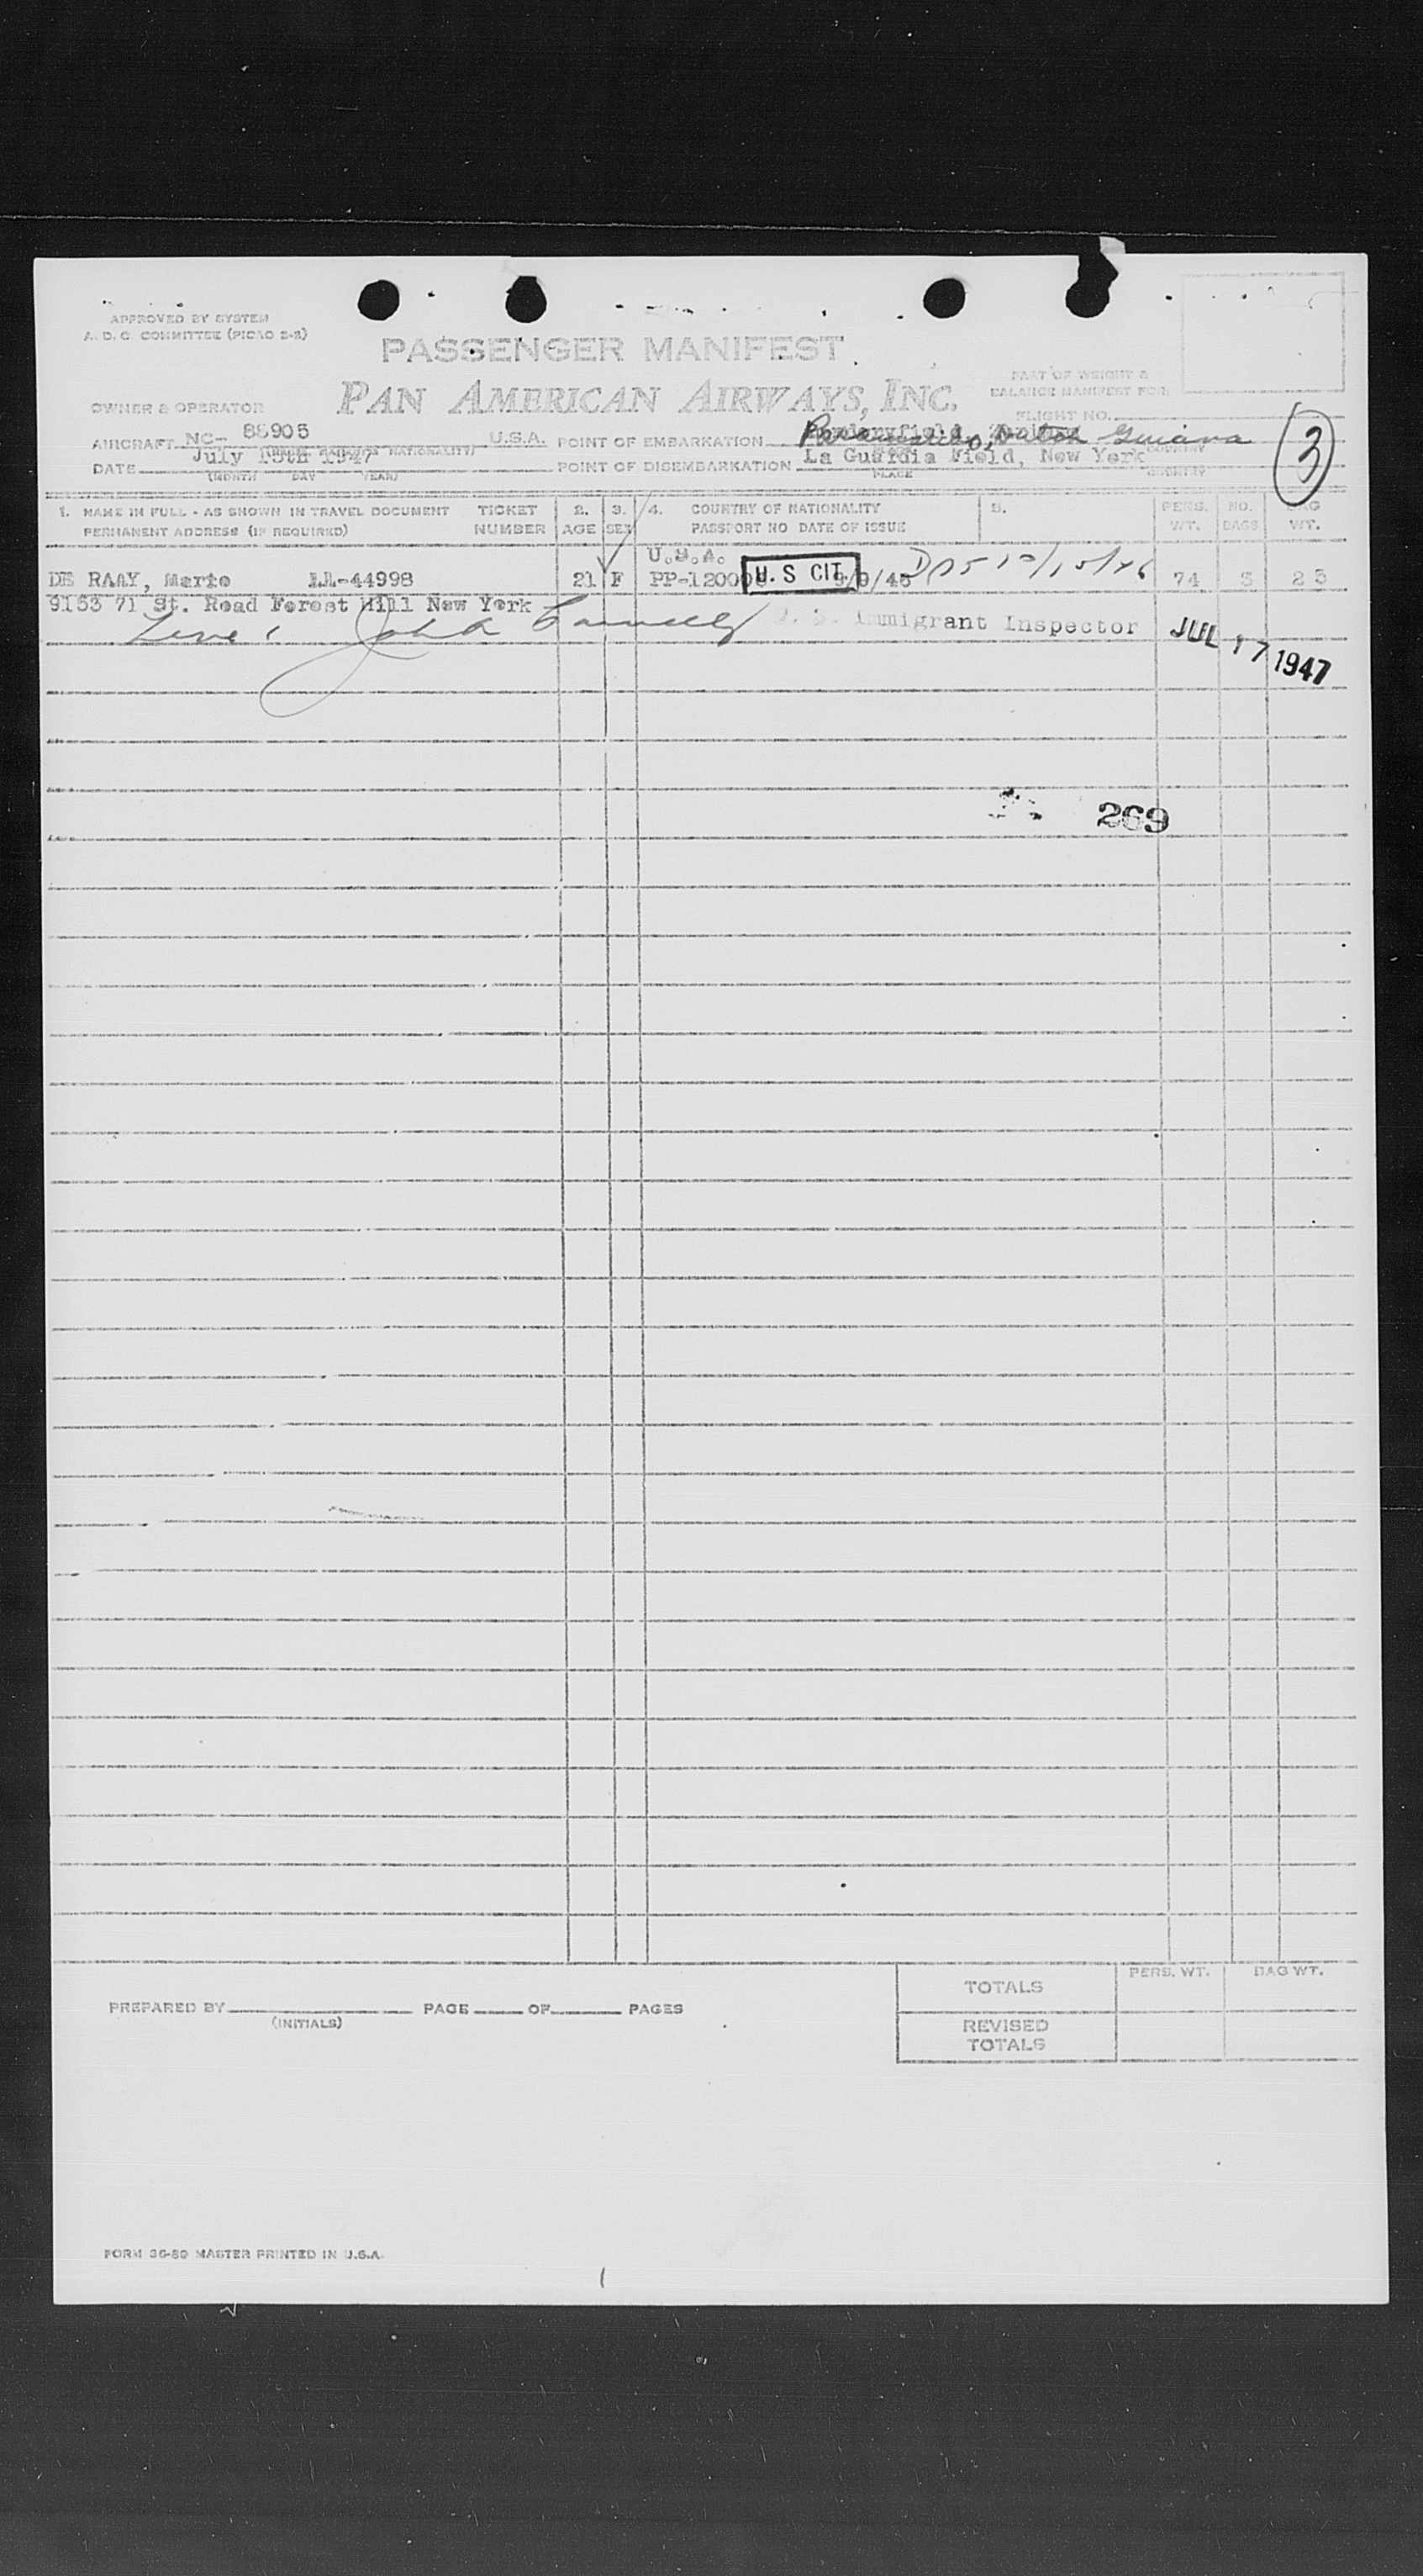 APPROVED BY SYSTEM
A.D.C. COMMITTEE (PICAO 2-2)
PASSENGER MANIFEST
PAN AMERICAN AIRWAYS, INC.
PART OF WEIGHT &
BALANCE MANIFEST FOR:
OWNER & OPERATOR
FLIGHT NO.
AIRCRAFT NC- 88905 U.S.A. POINT OF EMBARKATION Paramaribo, Dutch Guiana
(NATIONALITY) COUNTRY
DATE July 1947 POINT OF DISEMBARKATION La Guardia Field, New York
(MONTH DAY YEAR) PLACE COUNTRY
3
1. NAME IN FULL - AS SHOWN IN TRAVEL DOCUMENT TICKET 2. 3. 4. COUNTRY OF NATIONALITY 5. PERS. NO. BAG
PERMANENT ADDRESS (IF REQUIRED) NUMBER AGE SEX PASSPORT NO DATE OF ISSUE WT. BAGS WT.
U.S.A.
DE RAAY, Marie LL-44998 21 F PP-12000 U. S CIT. /9/46 12/15/46 74 3 23
9153 71 St. Road Forest Hill New York
Line 1 John U. S. Immigrant Inspector JUL 17 1947
269
TOTALS PERS. WT. BAG WT.
PREPARED BY PAGE OF PAGES
(INITIALS)
REVISED
TOTALS
FORM 36-80 MASTER PRINTED IN U.S.A.